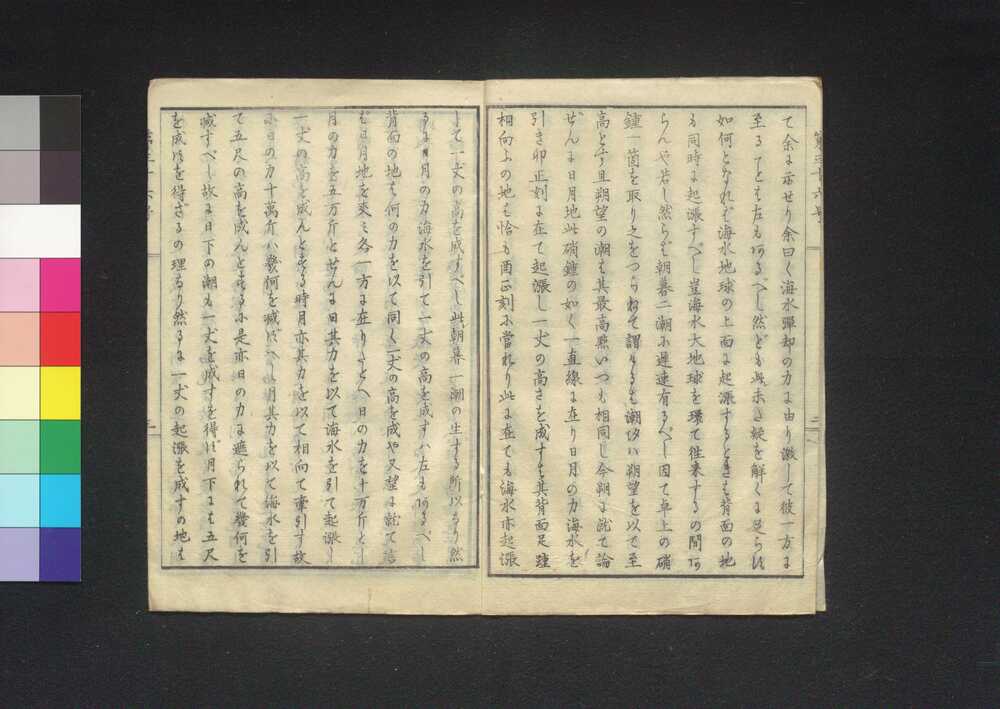 て余に示せり余曰く海水彈却の力に由り激して彼一方に
至るてとも左も有るべし然ども此未だ疑を解くに足らず
如何となれば海水地球の上面に起漲するときも背面の地
も同時に起漲すべし豈海水大地球を環て往来するの間有
らんや若し然らば朝暮二潮に遅速有るべし因て卓上の硝
鍾一箇を取り之をつらねて謂けるも潮汐ハ朔望を以て至
高とす且朔望の潮も其最高點いつも相同し今朔に就て論
ぜんに日月地此硝鍾の如く一直線に在り日月の力海水を
引き卯正刻に在て起漲し一丈の高さを成すも其背面足踵
相向ふの地も恰も酉正刻に當れり此に在ても海水亦起漲
して一丈の高を成すべし此朝暮二潮の生する所以なり然
るに日月の力海水を引て一丈の高を成すハ左も有るべし
背面の地も何の力を以て同く一丈の高を成や又望に就て論
ば日月地を夾み各一方に在りたとへハ日の力を十万斤とし
月の力を五万斤とせんに日其力を以て海水を引て起漲し
一丈の高を成んとする時月亦其力を以て相向て牽引す故
に日の力十萬斤ハ幾何を減ぜんへし月其力を以て海水を引
て五尺の高を成んとするに是亦日の力に遮られて幾何を
減すべし故に日下の潮も一丈を成すを得ず月下にも五尺
を成すを得ざるの理なり然るに一丈の起漲を成すの地も
第三十六号
二